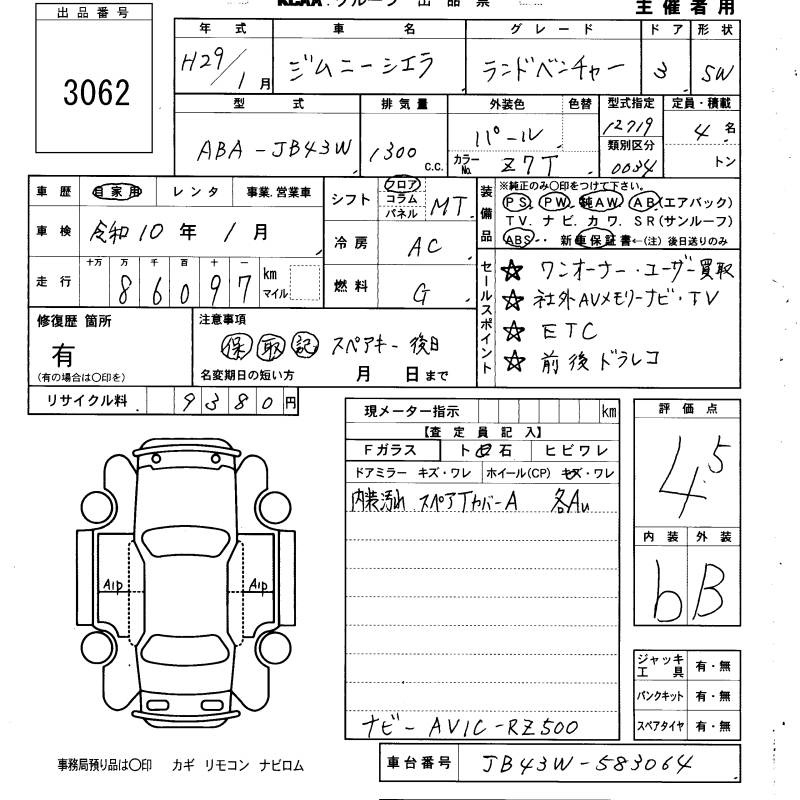 KCAA グループ 出品票
主催者用
出品番号
3062
年式 車名 グレード ドア 形状
H29/1月 ジムニーシエラ ランドベンチャー 3 SW
型式 排気量 外装色 色替 型式指定 定員・積載
ABA-JB43W 1300 c.c. パール 12719 4名
カラーNo. Z7T 類別区分 0034 トン
車歴 自家用 レンタ 事業.営業車
車検 令和10年1月
走行 十万 万 千 百 十 一
86097 km マイル
シフト フロア コラム パネル MT
冷房 AC
燃料 G
装備品 ※純正のみ〇印をつけて下さい。
PS. PW. 純AW. AB(エアバッグ)
TV. ナビ. カワ. SR(サンルーフ)
ABS・・ 新車保証書←(注) 後日送りのみ
セールスポイント
☆ ワンオーナー・ユーザー買取
☆ 社外AVメモリーナビ・TV
☆ ETC
☆ 前後ドラレコ
修復歴 箇所
有
(有の場合は〇印を)
注意事項
保 取 記 スペアキー後日
名変期日の短い方 月 日まで
リサイクル料 9380円
現メーター指示 km
【査定員記入】
Fガラス ト白石 ヒビワレ
ドアミラー キズ・ワレ ホイール(CP) キズ・ワレ
内装汚れ スペアTカバーA 各Au
ナビー AVIC-RZ500
評価点
4.5
内装 外装
b B
A1P A1P
ジャッキ工具 有・無
パンクキット 有・無
スペアタイヤ 有・無
事務局預り品は〇印 カギ リモコン ナビロム
車台番号 JB43W-583064